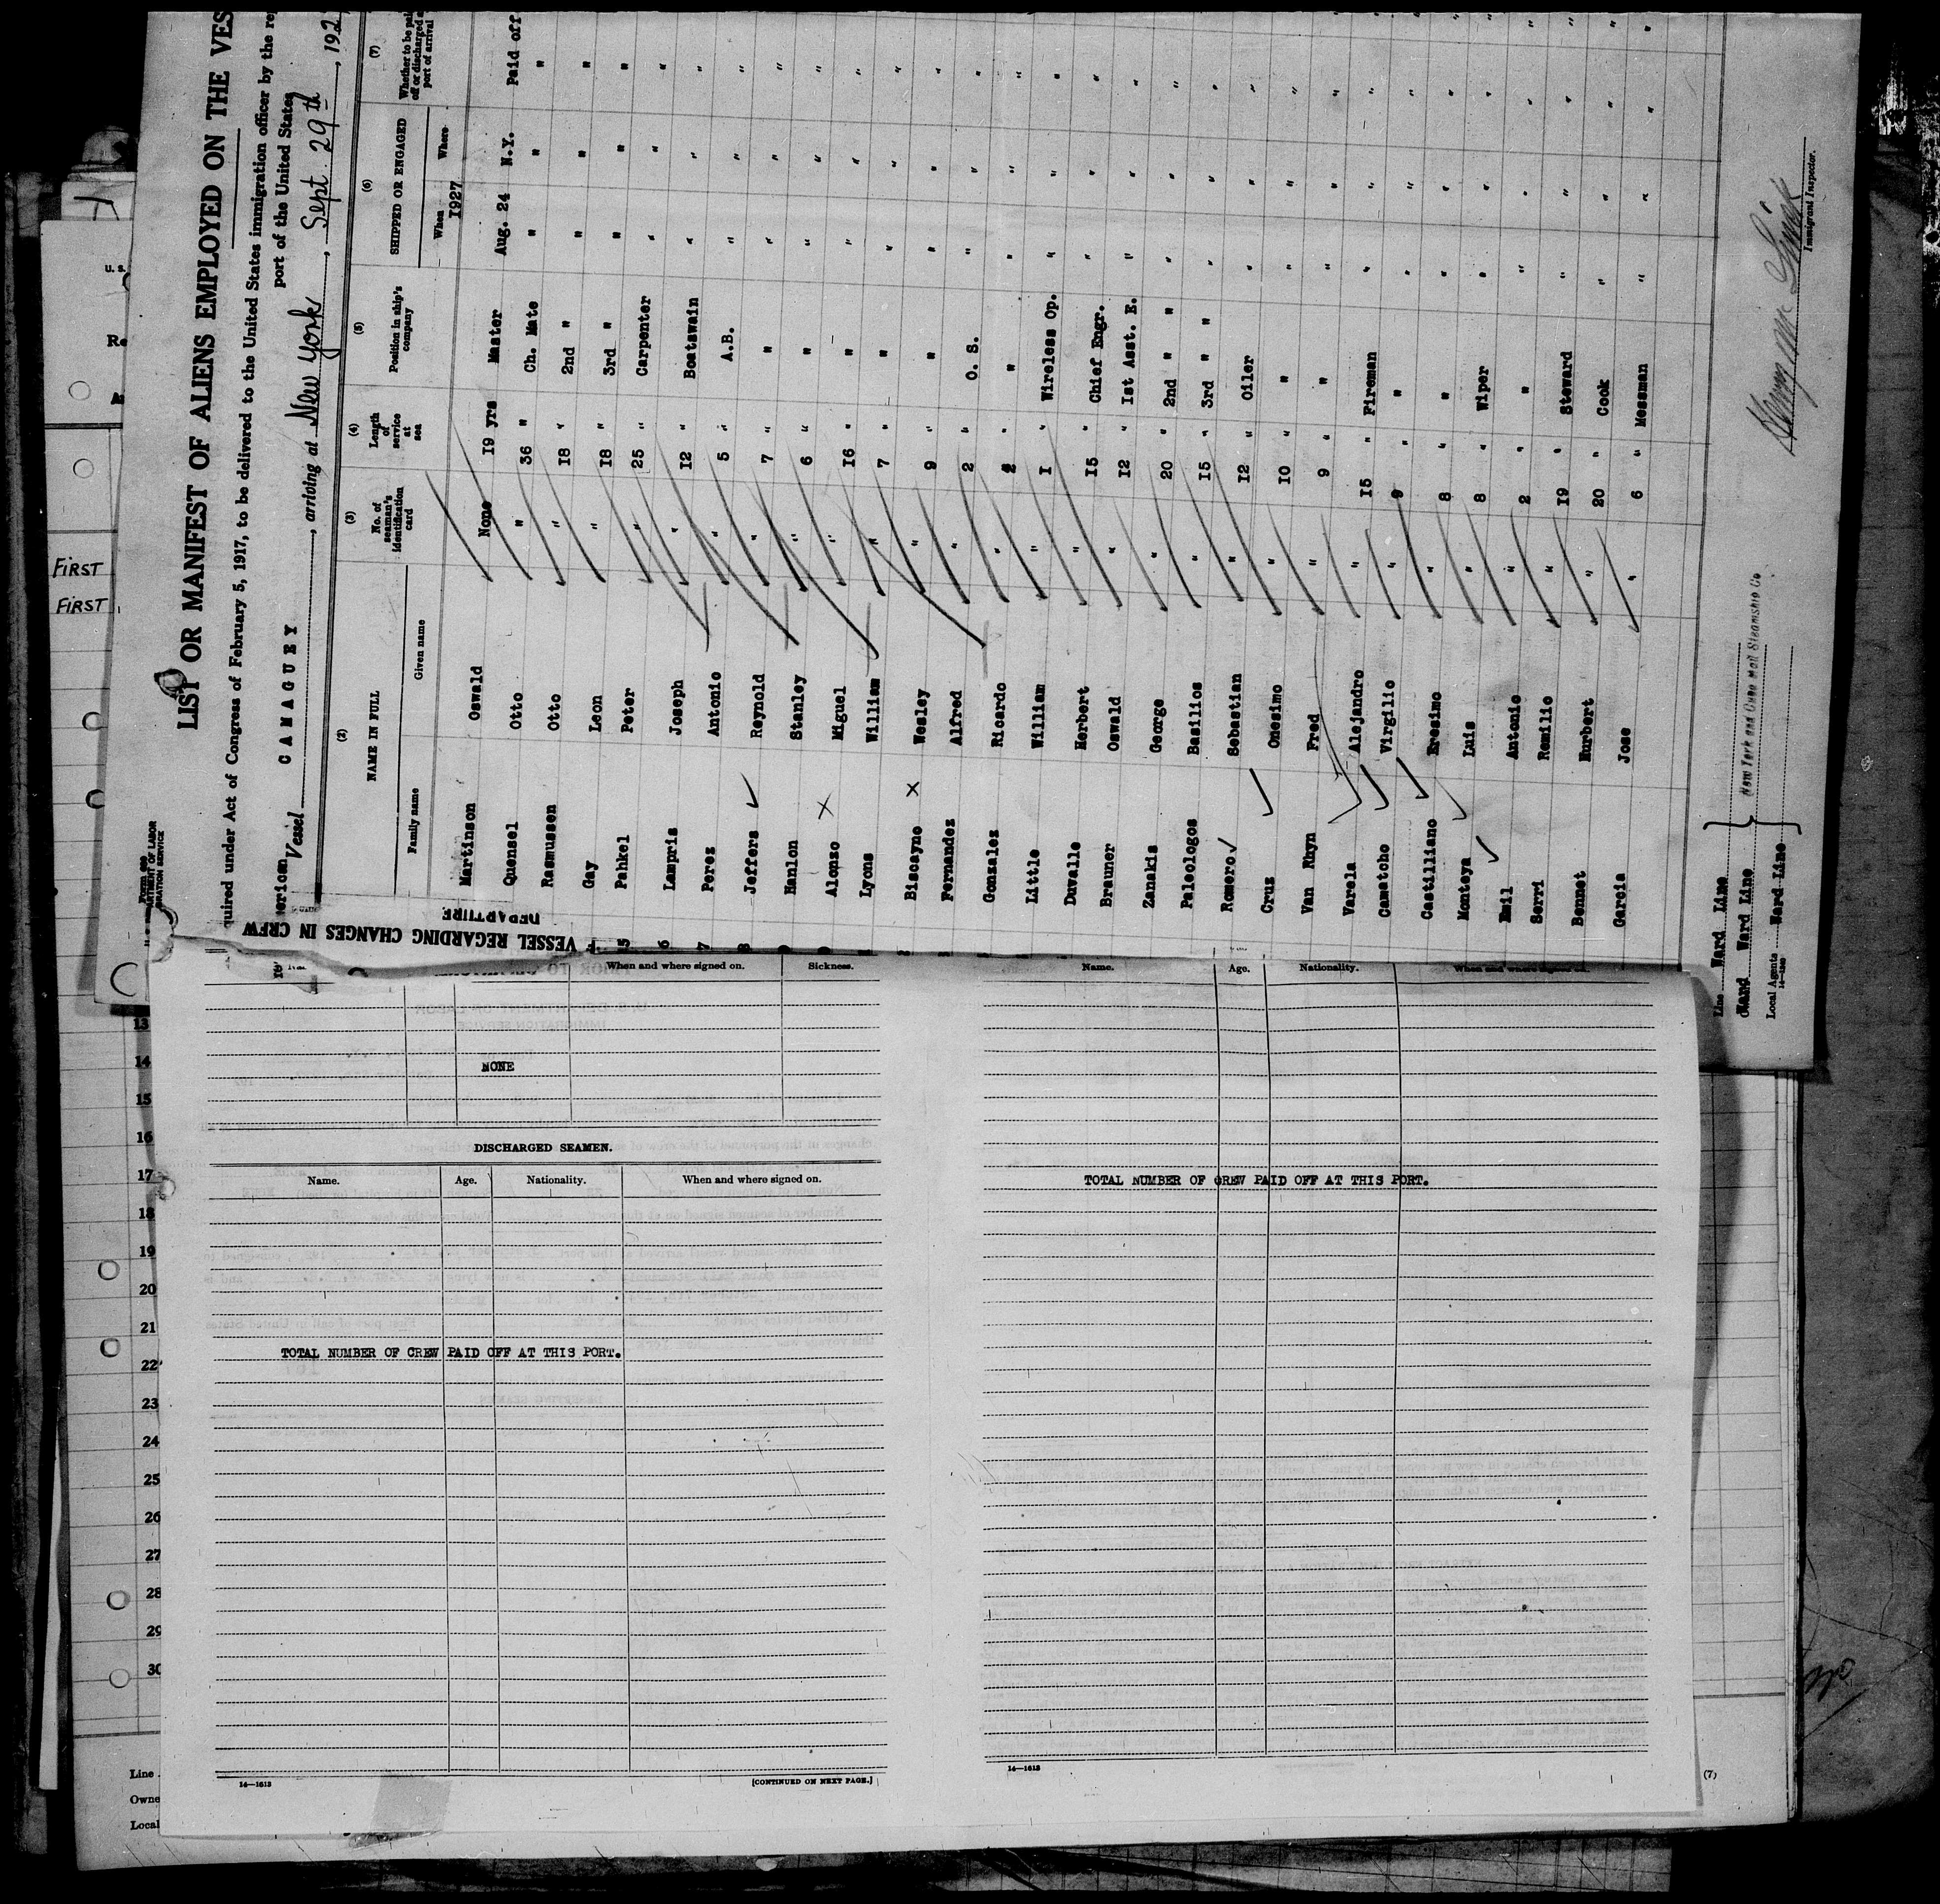 LIST OR MANIFEST OF ALIENS EMPLOYED ON THE VES
quired under Act of Congress of February 5, 1917, to be delivered to the United States immigration officer by the re
port of the United States
Vessel CAMAGUEY, arriving at New York, Sept. 29th, 192
(2) (3) (4) (5) (6) (7)
NAME IN FULL
Family name Given name
No. of seaman's identification card
Length of service at sea
Position in ship's company
SHIPPED OR ENGAGED
When Where
1927
Whether to be pai
off or discharged a
port of arrival
Martinson Oswald None 19 yrs Master Aug. 24 N.Y. Paid off
Quensel Otto " 36 " Ch. Mate " " "
Rasmussen Otto " 18 " 2nd " " " "
Gay Leon " 18 " 3rd " " " "
Pahkel Peter " 25 " Carpenter " " "
Lampris Joseph " 12 " Boatswain " " "
Perez Antonio " 5 " A.B. " " "
Jeffers Reynold " 7 " " " " "
Hanlon Stanley " 6 " " " " "
Alonzo Miguel " 16 " " " " "
Lyons William " 7 " " " " "
Biscayno Wesley " 9 " " " " "
Fernandez Alfred " 2 " O. S. " " "
Gonzalez Ricardo " 2 " " " " "
Little William " 1 " Wireless Op. " " "
Duvalle Herbert " 15 " Chief Engr. " " "
Brauner Oswald " 12 " 1st Asst. E. " " "
Zanakis George " 20 " 2nd " " " " "
Paleologos Basilios " 15 " 3rd " " " " "
Romero Sebastian " 12 " Oiler " " "
Cruz Onesimo " 10 " " " " "
Van Rhyn Fred " 9 " " " " "
Varela Alejandro " 15 " Fireman " " "
Camatcho Virgilio " 9 " " " " "
Castilliano Eresimo " 8 " " " " "
Monteya Luis " 8 " Wiper " " "
Emil Antonie " 2 " " " " "
Serri Remilio " 19 " Steward " " "
Bennet Hurbert " 20 " Cook " " "
Garcia Jose " 6 " Messman " " "
Line Ward Line
Ward Line
Local Agents Ward Line
New York and Cuba Mail Steamship Co
14-1240
Immigrant Inspector.
FIRST
FIRST
VESSEL REGARDING CHANGES IN CREW
DEPARTURE
When and where signed on. Sickness.
NONE
DISCHARGED SEAMEN.
Name. Age. Nationality. When and where signed on.
TOTAL NUMBER OF CREW PAID OFF AT THIS PORT.
14—1613
[CONTINUED ON NEXT PAGE.]
Name. Age. Nationality. When and where signed on.
TOTAL NUMBER OF CREW PAID OFF AT THIS PORT.
14—1613
(7)
13
14
15
16
17
18
19
20
21
22
23
24
25
26
27
28
29
30
Line
Owne
Local